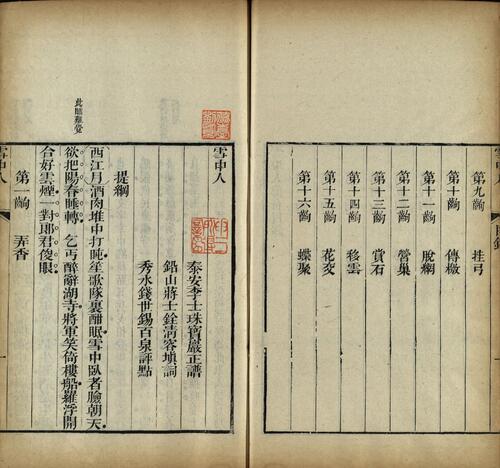 第九齣 挂弓
第十齣 傳檄
第十一齣 脫網
第十二齣 營巢
第十三齣 賞石
第十四齣 移雲
第十五齣 花交
第十六齣 蝶聚
雪中人
泰安李士珠寶巖正譜
鉛山蔣士銓淸容塡詞
秀水錢世錫百泉評點
提綱
西江月酒肉堆中打盹笙歌隊裏酣眠雪中臥者臉朝天
欲把陽春睡轉 乞丐醉辭湖寺將軍笑倚樓船羅浮開
合好雲煙一對郎君俊眼
第一齣 弄香
此睡難覺
雪中人